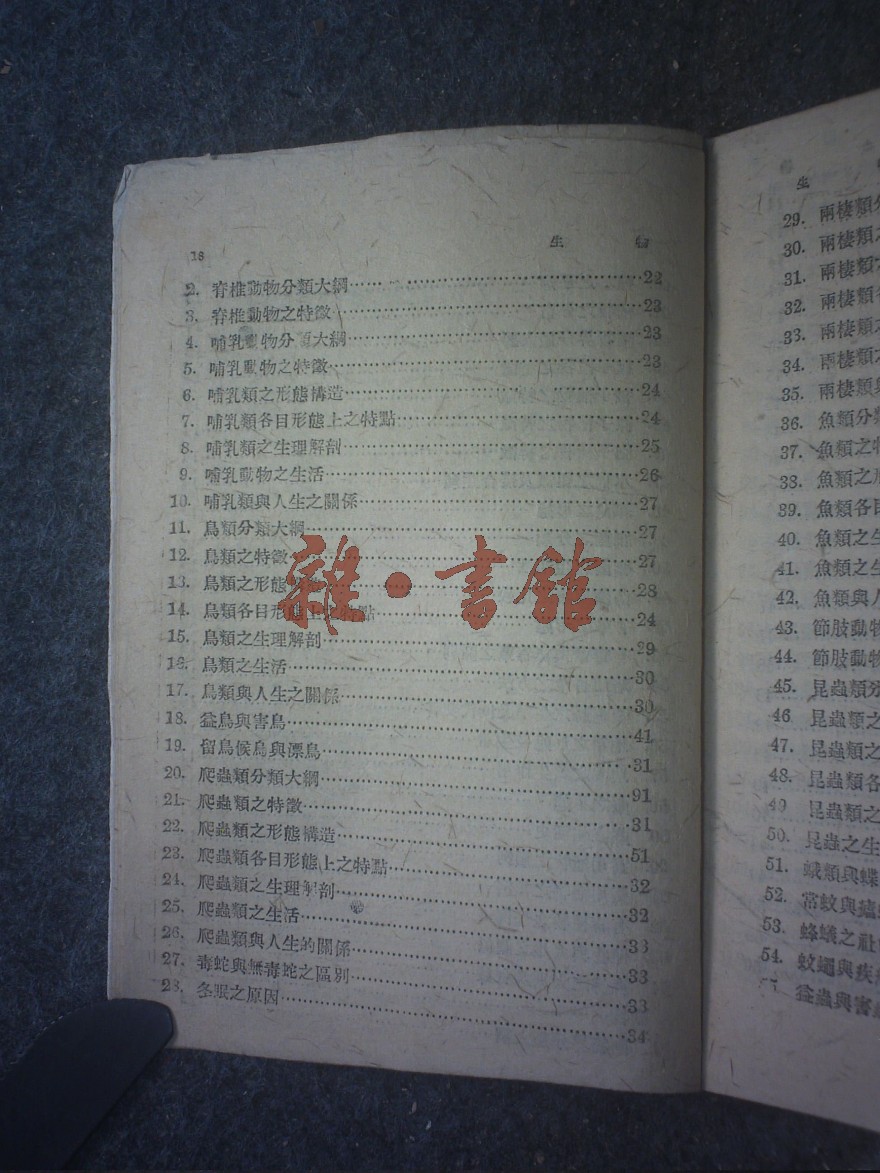 18 生 物
2. 脊椎動物分類大綱……………………22
3. 脊椎動物之特徵……………………23
4. 哺乳動物分類大綱……………………23
5. 哺乳動物之特徵……………………23
6. 哺乳類之形態構造……………………24
7. 哺乳類各目形態上之特點……………………24
8. 哺乳類之生理解剖……………………25
9. 哺乳動物之生活……………………26
10. 哺乳類與人生之關係……………………27
11. 鳥類分類大綱……………………27
12. 鳥類之特徵……………………27
13. 鳥類之形態構造……………………28
14. 鳥類各目形態上之特點……………………24
15. 鳥類之生理解剖……………………29
16. 鳥類之生活……………………30
17. 鳥類與人生之關係……………………30
18. 益鳥與害鳥……………………41
19. 留鳥候鳥與漂鳥……………………31
20. 爬蟲類分類大綱……………………91
21. 爬蟲類之特徵……………………31
22. 爬蟲類之形態構造……………………51
23. 爬蟲類各目形態上之特點……………………32
24. 爬蟲類之生理解剖……………………32
25. 爬蟲類之生活……………………33
26. 爬蟲類與人生的關係……………………33
27. 毒蛇與無毒蛇之區別……………………33
28. 冬眠之原因……………………34
雜·書館
生
29. 兩棲類分
30. 兩棲類之
31. 兩棲類之
32. 兩棲類各
33. 兩棲類之
34. 兩棲類之
35. 兩棲類與
36. 魚類分類
37. 魚類之特
38. 魚類之形
39. 魚類各目
40. 魚類之生
41. 魚類之生
42. 魚類與人
43. 節肢動物
44. 節肢動物
45. 昆蟲類分
46. 昆蟲類之
47. 昆蟲類之
48. 昆蟲類各
49. 昆蟲類之
50. 昆蟲之生
51. 蛾類與蝶
52. 常蚊與瘧
53. 蜂蟻之社
54. 蚊蠅與疾
益蟲與害